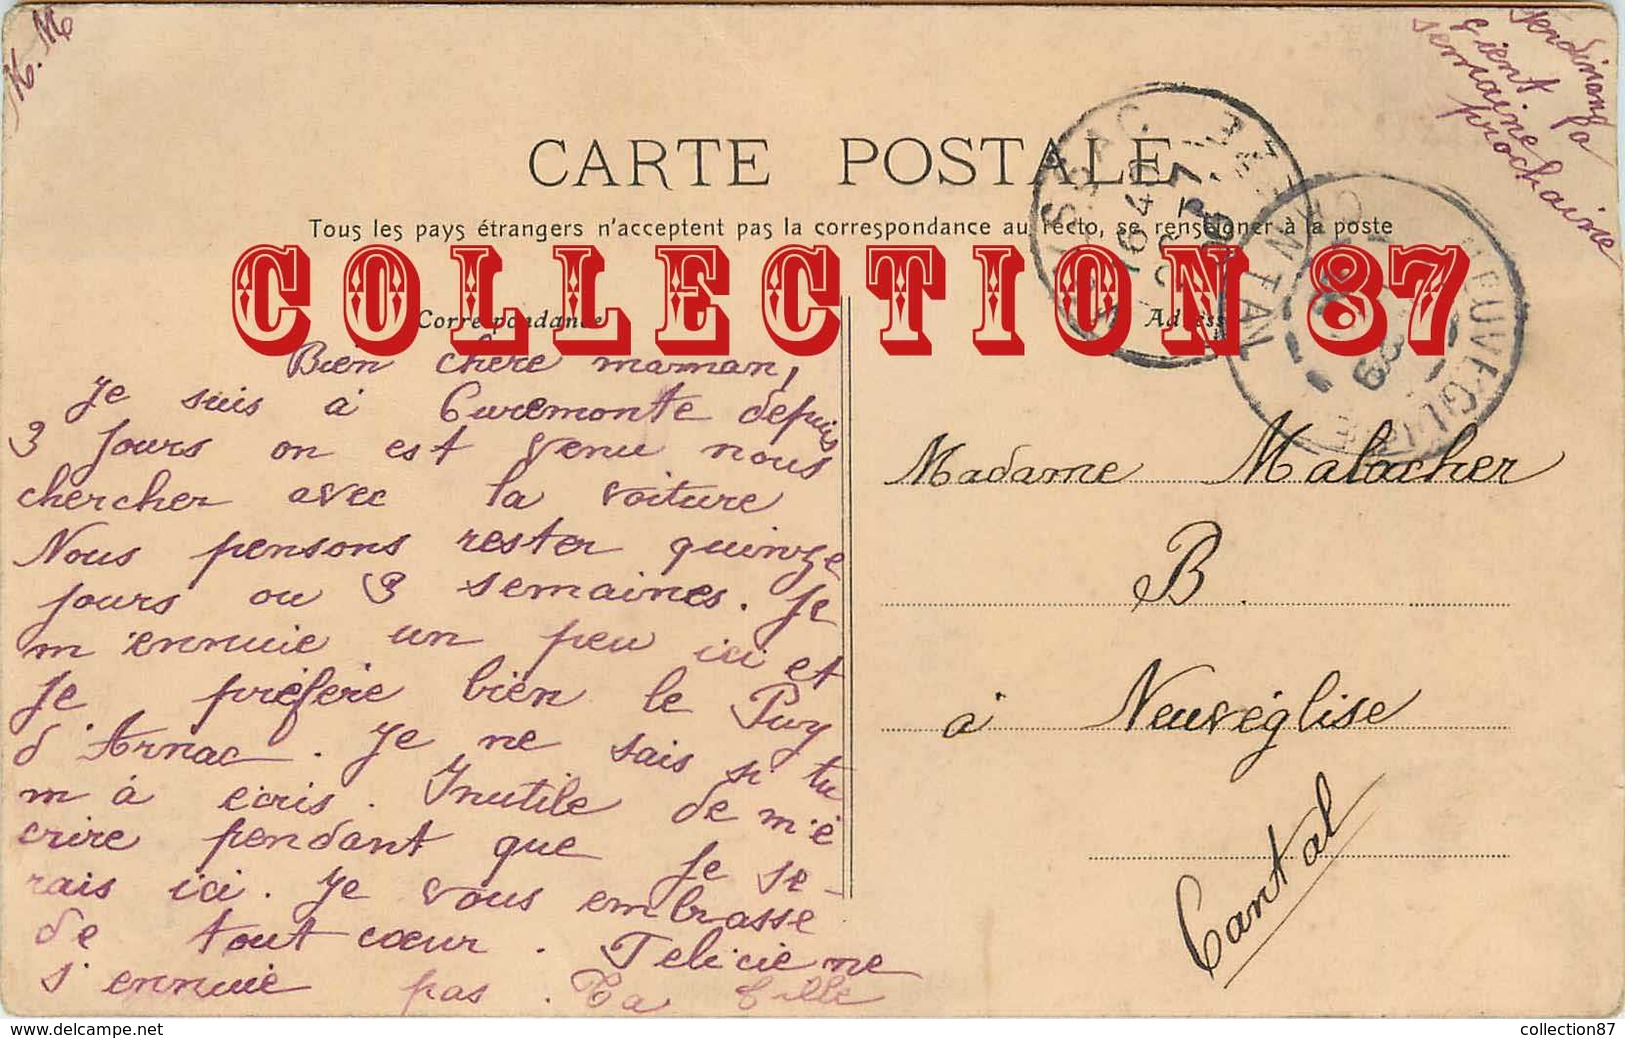 M. M
Ferdinand
vient
semaine
prochaine
CARTE POSTALE
Tous les pays étrangers n'acceptent pas la correspondance au recto, se renseigner à la poste
COLLECTION 87
Correspondance
Adresse
Bien chère maman,
Je suis à Curemonte depuis
3 jours on est venu nous
chercher avec la voiture
Nous pensons rester quinze
jours ou 3 semaines. Je
m'ennuie un peu ici et
Je préfère bien le Puy
d'Arnac. Je ne sais si tu
m'a écris. Inutile de m'é
crire pendant que je se-
rais ici. Je vous embrasse
de tout cœur. Felicie ne
s'ennuie pas. Ta fille
Madame Malacher
B.
à Neuvéglise
Cantal
NEUVEGLISE
CANTAL
collection87